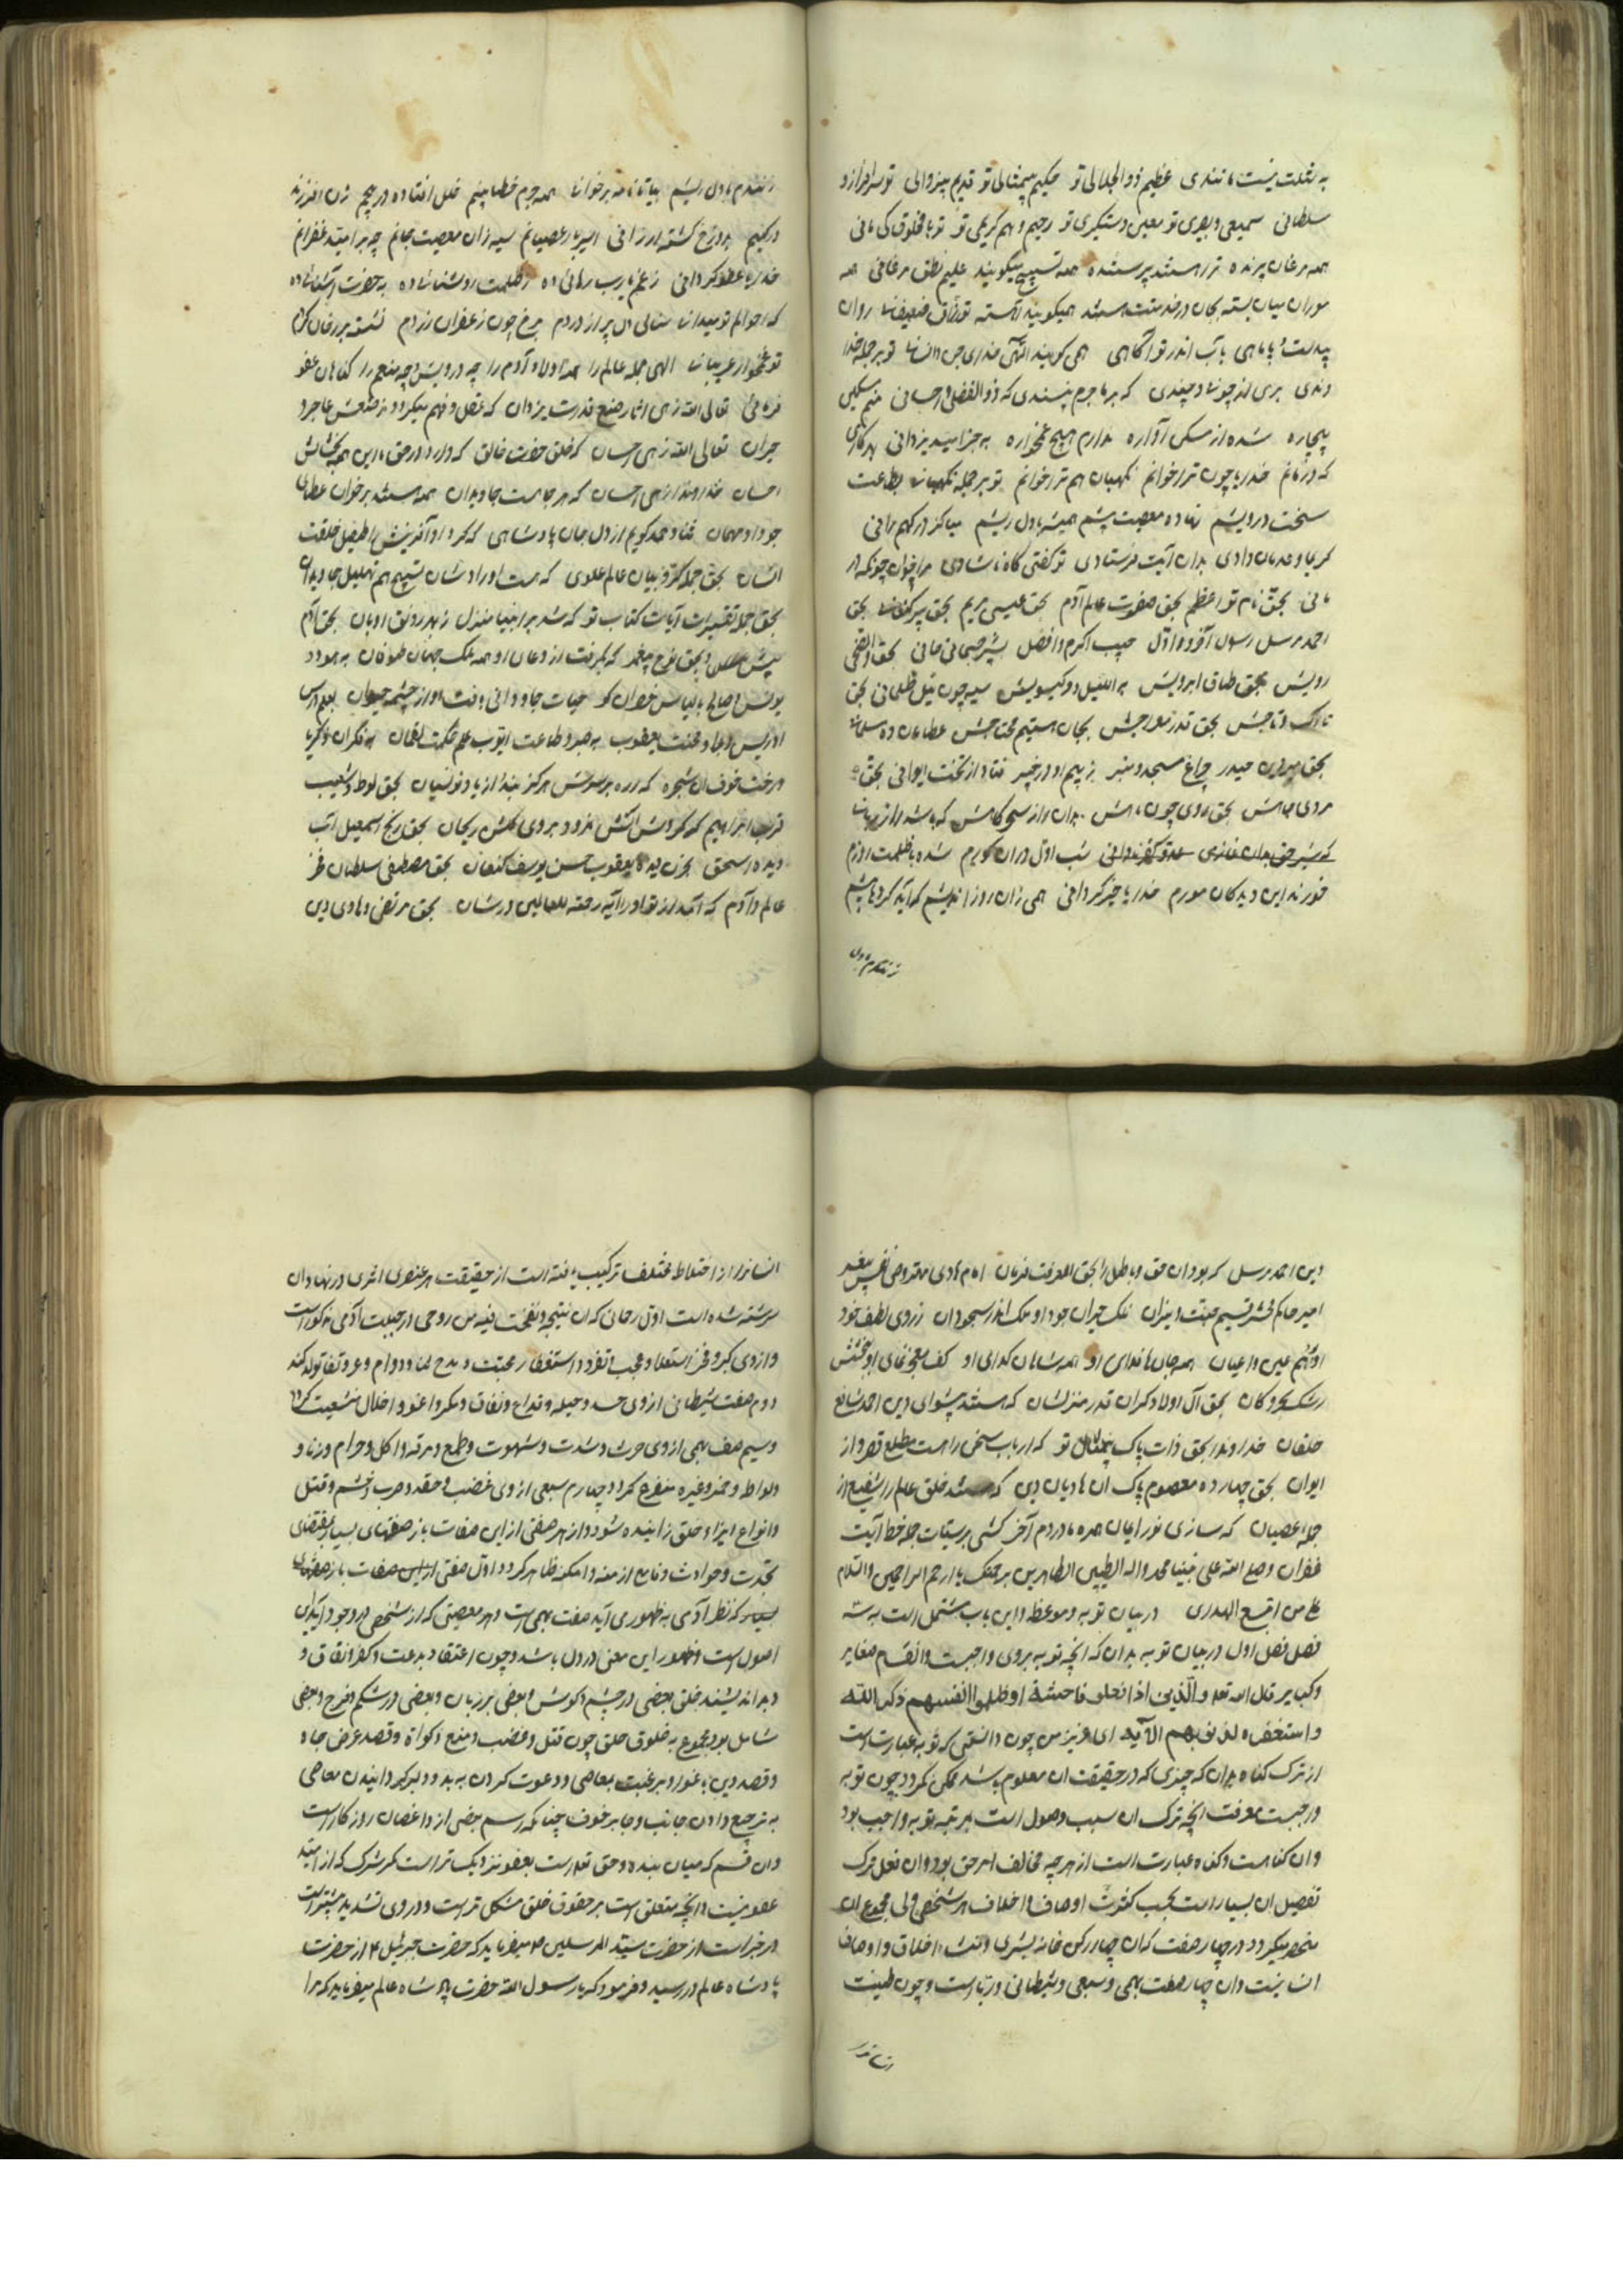 به مثلت نیست مانندی عظیم ذو الجلالی تو حکیم بیمثالی تو قدیم بیزوالی تو سرافراز و
سلطانی سمیعی و بصیری تو معین و دستگیری تو رحیم و هم کریمی تو تو با مخلوق کی مانی
همه مرغان پرنده ترا هستند پرستنده همه تسبیح میگویند علیم نطق مرغانی همه
موران میان بسته بجان در خدمتت هستند همیگویند آهسته تو رزاق ضعیفانی روان
باب اندر تو آگاهی همی گویند الهی خدای جن و انسانی تو بر جمله خدا
وندی بری از چون و چندی که بر ما جرم نپسندی که ذو الفضل و احسانی منم مسکین
بیچاره شده از مسکن آواره ندارم هیچ غمخواره به جز امید یزدانی
که درمانم خدایا چون ترا خوانم نگهبان هم ترا خوانم تو بر جمله نگهبانی بطاعت
سخت درویشم نهاده معصیت پیشم همیشه با دل ریشم
کریما وعده مان دادی بدان آیت فرستادی تو گفتی گاه ناشادی مرا خوان چونکه در
مانی بحق نام تو اعظم بحق صفوت عالم آدم بحق عیسی مریم بحق پیر کنعانی بحق
احمد مرسل رسول آخر و اول حبیب اکرم و افضل بحق والضحی
رویش بحق طاق ابرویش به اللیل دو گیسویش سیه چون لیل ظلمانی بحق
تارک و تاجش بحق قدر معراجش بجان هستیم محتاجش عطامان ده مسلمانی
بحق حیدر چراغ مسجد و منبر ز بیم او در خیبر فتاد از تخت ایوانی بحق
روی چون ماهش بدان راز سحرگاهش که باشد راز
که شیر حق بدان غازی شب اول در آن گورم شده با ظلمت
خورند این دیدگان مورم خدایا خیر گردانی همی زان روز اندیشم که آید کرده با پیشم
ز تقدم با دل
ز تقدم با دل ریشم بیاتا نامه برخوانی همه جرم خطا بینم خلل افتاده در
در کیم بدوزخ گشته ارزانی اسیر بار عصیانم سیه زان معصیت جانم چه بر امید غفرانم
خدایا عفو گردانی ز غم یارب رهائی ده ز ظلمت روشنائی ده به حضرت آشنائی ده
که احوالم تو میدانی دل پر از دردم رخ چون زعفران زردم نشسته
تو غمخوار غریبانی الهی جمله عالم را همه اولاد آدم را چه درویش و چه منعم را گناهان عفو
فرمائی تعالی الله زهی آثار صنع قدرت یزدان که عقل و فهم میگردد ز صنعش عاجز و
حیران تعالی الله زهی احسان که خلق حضرت خالق که دارد در حق ما این همه بخشایش
احسان خداوندا زهی احسان که هر جا هست جاویدان همه هستند بر خوان عطای
جود او مهمان ثنا و حمد گویم از دل و جان پادشاهی که کرد او آفرینش را طفیل خلقت
انسان بحق جمله کروبیان عالم علوی که هست اوراد شان تسبیح هم تهلیل جاویدان
بحق جمله تفسیرات آیات کتاب تو که شد بر انبیا منزل ز بهر رونق ادیان بحق آدم
پیش و بحق نوح پیغمبر که بگرفت از دعای او همه ملک جهان طوفان به هود و
یونس و صالح بالیاس خضر کو حیات جاودانی یافت او از چشمه حیوان
ادریس و محنت یعقوب به صبر و طاعت ایوب علم حکمت لقمان
درخت خوف آن شجره که اره بر سرش هرگز نبد از یاد تو نسیان بحق لوط و شعیب
ابراهیم که کردش آتش نمرود بروی گلشن ریحان بحق رنج اسمعیل
دیده اسحق بحزن دیده یعقوب حسن یوسف کنعان بحق مصطفی سلطان
عالم و آدم که آمد از تو او را آیه رحمة للعالمین در شان بحق مرتضی هادی دین
دین احمد مرسل که بود آن حق و باطل را بحق المعرفت فرقان امام هادی مهتر وصی نفس پیغمبر
امیر حاکم محشر قسیم جنت و نیران فلک حیران جود او ملک اندر سجود آن ز روی لطف خود
همه جانها فدای او همه شاهان گدای او کف معجز نمای او بخشش
رشک بحر و کان بحق آل اولاد کز آن قدر منزلشان که هستند پیشوای دین احمد شافع
خلقان خداوندا بحق ذات پاک بیمثال تو که ارباب سخن را هست مطلع
ایوان بحق چهارده معصوم پاک آن هادیان دین که هستند خلق عالم را شفیع از
جمله عصیان که سازی نور ایمان همره ما در دم آخر کشی بر سیئات جمله خط آیت
غفران و صلی الله علی نبینا محمد و اله الطیبین الطاهرین برحمتک یا ارحم الراحمین والسلام
علی من اتبع الهدی در بیان توبه و موعظه و این باب مشتمل است به سه
فصل فصل اول در بیان توبه بدان که آنچه توبه بر وی واجبست و انقسام صغایر
و کبایر قال الله تعالی والذین اذا فعلوا فاحشة او ظلموا انفسهم ذکروا الله
و استغفروا لذنوبهم الآیه ای عزیز من چون دانستی که توبه عبارتست
از ترک گناه بدان که چیزی که در حقیقت آن معلوم باشد ممکن نگردد چون توبه
واجبست معرفت آنچه ترک آن سبب وصول است بمرتبه توبه واجب بود
و آن گناهست و گناه عبارت است از هر چه مخالف امر حق بود و آن فعل و ترک
تفصیل آن بسیار است بحسب کثرت اوصاف و اخلاق هر شخصی ولی مجموع آن
منحصر میگردد در چهار صفت که آن چهار رکن خانه بشری و منشا اخلاق و اوصاف
انسانیست و آن چهار صفت بهیمی و سبعی و شیطانی و ربانیست و چون طینت
انسانرا از
انسانرا از اخلاط مختلف ترکیب یافته است از حقیقت هر عنصری اثری در نهاد آن
سرشته شده است اول ربانی که آن نتیجه و نفخت فیه من روحی در جبلت آدمی مذکور است
و از وی کبر و فخر استعلا و عجب تفرد و استغفار و محبت و مدح ثنا و دوام و عز و بقا تولد کند
دوم صفت شیطانی از وی حسد و حیله و خداع و نفاق و مکر و اغوا و اضلال منشعب گردد
و سیم صفت بهیمی از وی حرص و شدت و شهوت و طمع و سرقه و اکل حرام و زنا و
و لواط و خمر و غیره متفرع گردد و چهارم سبعی از وی غضب و حقد و ضرب و شتم و قتل
و انواع ایزاء خلق زاینده شود و از هر صفتی از این صفات باز صفتهای بسیار بمقتضای
تجدد و حوادث وقایع ازمنه و امکنه ظاهر گردد و اول صفتی از این صفات باز صفتهای
بسیار که نظر آدمی به ظهور می آید صفت بهیمی است و هر معصیتی که از شخصی در وجود آید آن
اصول است و ظهور این معنی در دل باشد و چون اعتقاد بدعت و کفر و نفاق و
و بد اندیشید خلق بعضی در چشم و گوش و بعضی بر زبان و بعضی در شکم و فرج و بعضی
شامل بود مجموع به حقوق خلق چون قتل و غضب و منع زکواة و قصد عرض جاه
و قصد دین باغوا و بر غبت معاصی و دعوت کردن به بد و دلیر گردانیدن معاصی
به ترجیح دادن جانب رجا بر خوف چنانکه رسم بعضی از واعظان روزگار است
و آن قسم که میان بنده و حق تعالی است بعفو نزدیک تر است مگر شرک که از امید
عفو نیست و آنچه متعلق است بر حقوق خلق مشکل تر است و در وی تشدید بیشتر است
در خبر است از حضرت سید المرسلین ص میفرماید که حضرت جبرئیل ع از حضرت
پادشاه عالم در رسید و فرمود که یا رسول الله حضرت پادشاه عالم میفرماید که مرا